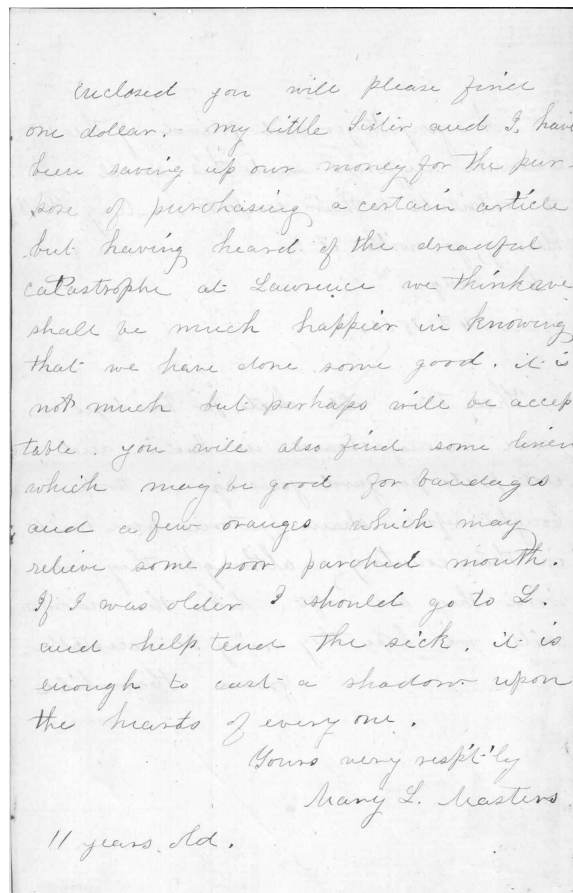 Enclosed you will please find
one dollar. my little Sister and I, have
been saving up our money for the pur-
pose of purchasing a certain article
but having heard of the dreadful
catastrophe at Lawrence we think we
shall be much happier in knowing
that we have done some good. it is
not much but perhaps will be accep
table. you will also find some linen
which may be good for bandages
and a few oranges which may
relieve some poor parched mouth.
If I was older I should go to L.
and help tend the sick. it is
enough to cast a shadow upon
the hearts of every one.
Yours very respt'ly
Mary L. Masters
11 years old.